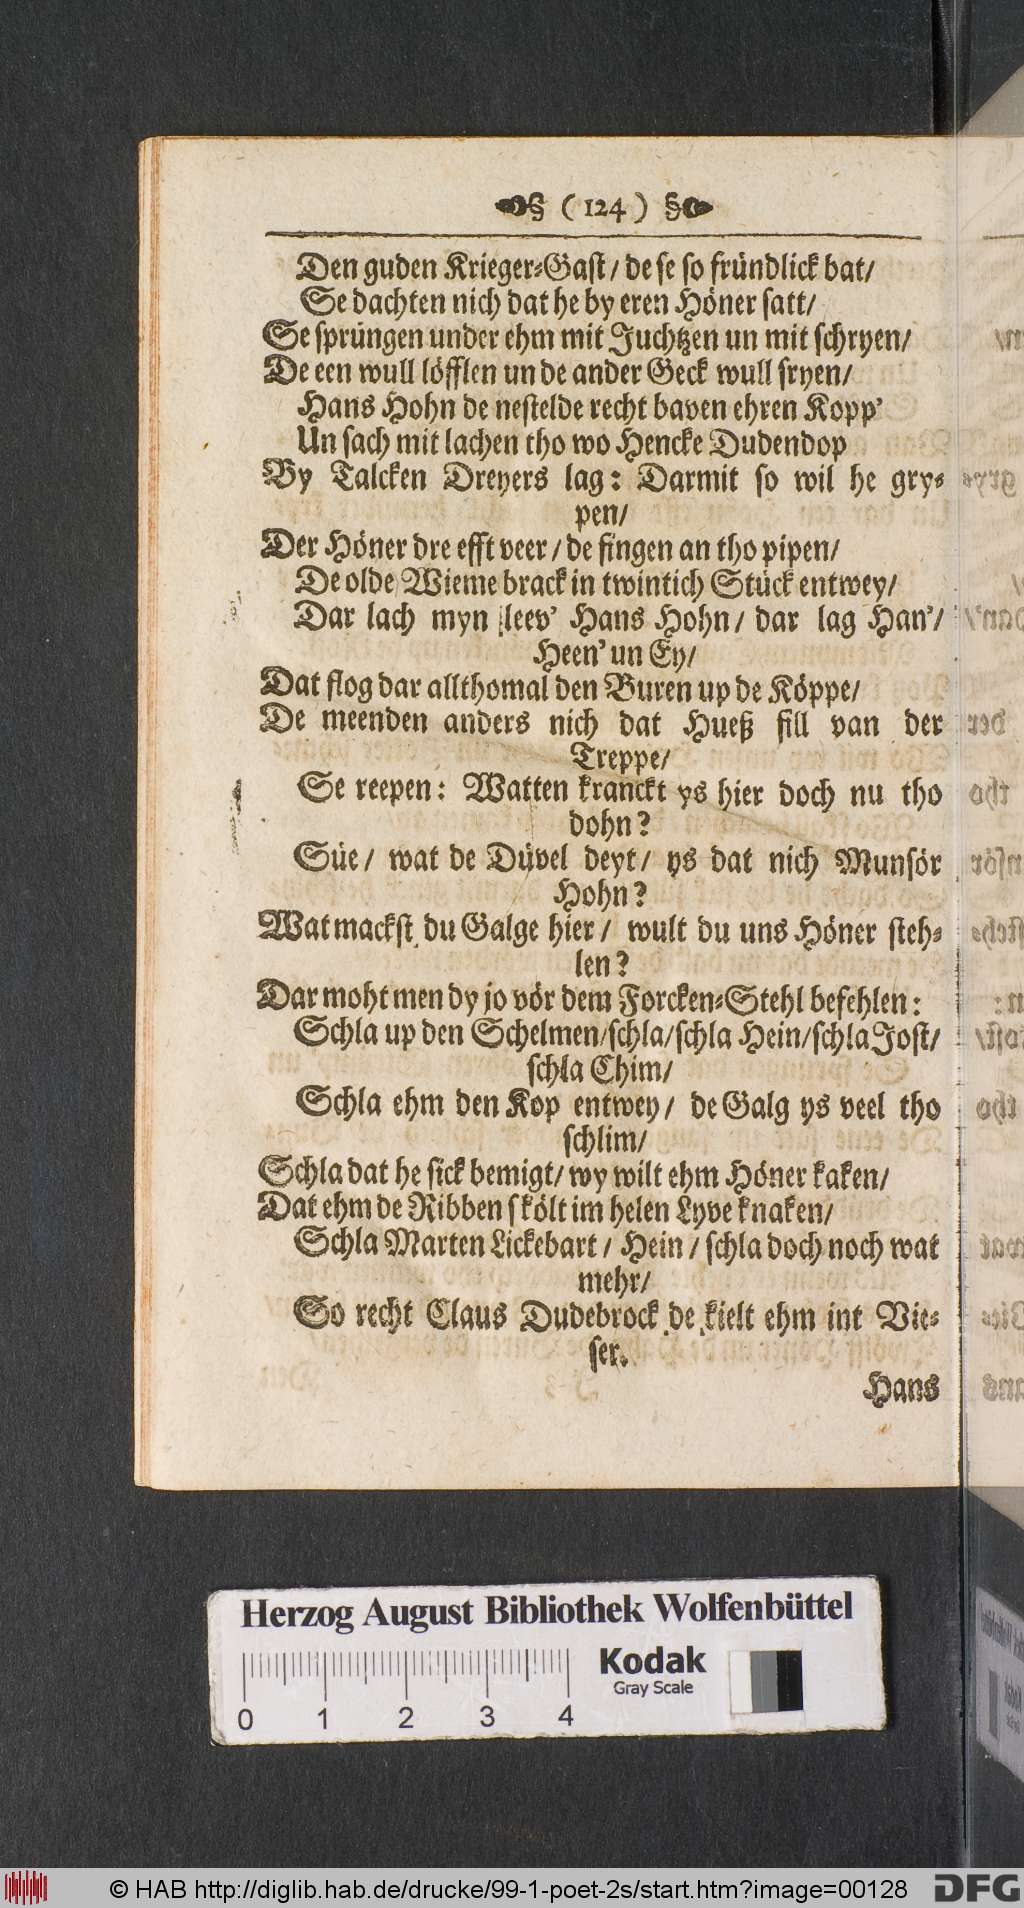 ( 124 )
Den guden Krieger-Gast / de se so fründlick bat /
Se dachten nich dat he by eren Höner satt /
Se sprüngen under ehm mit Juchtzen un mit schryen /
De een wull löfflen un de ander Geck wull fryen /
Hans Hohn de nestelde recht baven ehren Kopp'
Un sach mit lachen tho wo Hencke Dudendop
By Talcken Dreyers lag: Darmit so wil he gry-
pen /
Der Höner dre efft veer / de fingen an tho pipen /
De olde Wieme brack in twintich Stück entwey /
Dar lach myn leev' Hans Hohn / dar lag Han' /
Heen' un Ey /
Dat flog dar allthomal den Buren up de Köppe /
De meenden anders nich dat Hueß fill van der
Treppe /
Se reepen: Watten kranckt ys hier doch nu tho
dohn?
Süe / wat de Düvel deyt / ys dat nich Munsör
Hohn?
Wat mackst du Galge hier / wult du uns Höner steh-
len?
Dar moht men dy jo vör dem Forcken-Stehl befehlen:
Schla up den Schelmen / schla / schla Hein / schla Jost /
schla Chim /
Schla ehm den Kop entwey / de Galg ys veel tho
schlim /
Schla dat he sick bemigt / wy wilt ehm Höner kaken /
Dat ehm de Ribben skölt im helen Lyve knaken /
Schla Marten Lickebart / Hein / schla doch noch wat
mehr /
So recht Claus Dudebrock de kielt ehm int Vie-
ser.
Hans
Herzog August Bibliothek Wolfenbüttel
Kodak
Gray Scale
0 1 2 3 4
© HAB http://diglib.hab.de/drucke/99-1-poet-2s/start.htm?image=00128
DFG